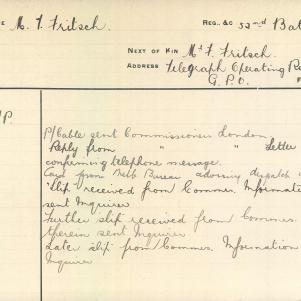 E M. F. Fritsch. REG., &C 52nd Bat
NEXT OF KIN Mr F. Fritsch.
ADDRESS Telegraph Operating Ro
G. P. O. F
P.
P/Cable sent Commissioner London
Reply from " " Letter
confirming telephone message.
Card from Melb Bureau advising dispatch
Slip received from Commer. Informatio
sent Inquirer
Further slip received from Commer.
therein sent Inquirer
Later slip from Commer. Information
Inquirer